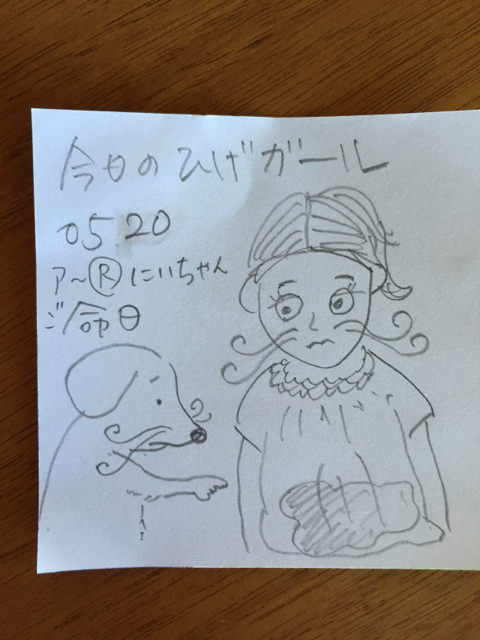 今日のひげガール
05.20
ア〜Ⓡにいちゃん
ご命日